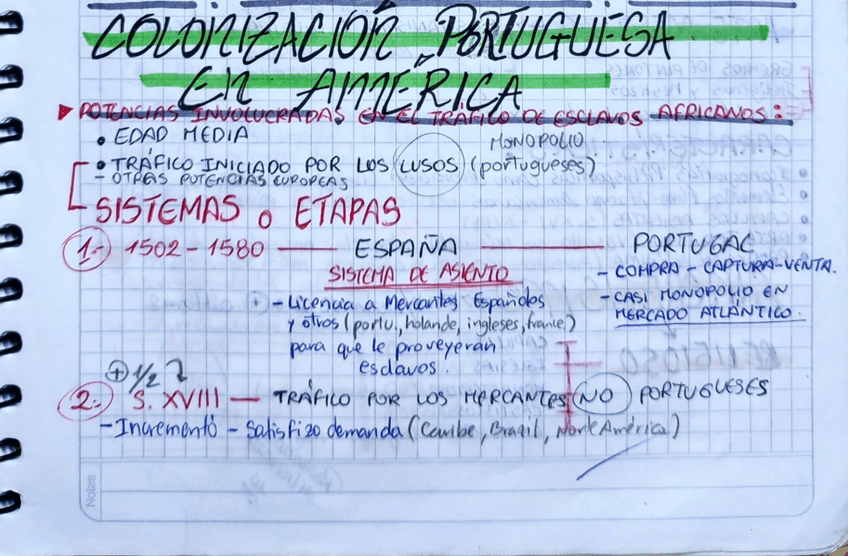 COLONIZACIÓN PORTUGUESA
EN AMÉRICA
POTENCIAS INVOLUCRADAS EN EL TRÁFICO DE ESCLAVOS AFRICANOS:
• EDAD MEDIA
MONOPOLIO
• TRÁFICO INICIADO POR LOS LUSOS (portugueses)
- OTRAS POTENCIAS EUROPEAS
SISTEMAS o ETAPAS
1.- 1502 - 1580 — ESPAÑA — PORTUGAL
SISTEMA DE ASIENTO
- COMPRA - CAPTURA - VENTA.
- Licencia a Mercantes Españoles
- CASI MONOPOLIO EN
y otros (portu., holande, ingleses, france.)
MERCADO ATLÁNTICO.
para que le proveyeran
esclavos.
+ 1/2
2.- S. XVIII — TRÁFICO POR LOS MERCANTES NO PORTUGUESES
- Incrementó - Satisfizo demanda (Caribe, Brazil, Norte América)
Notas